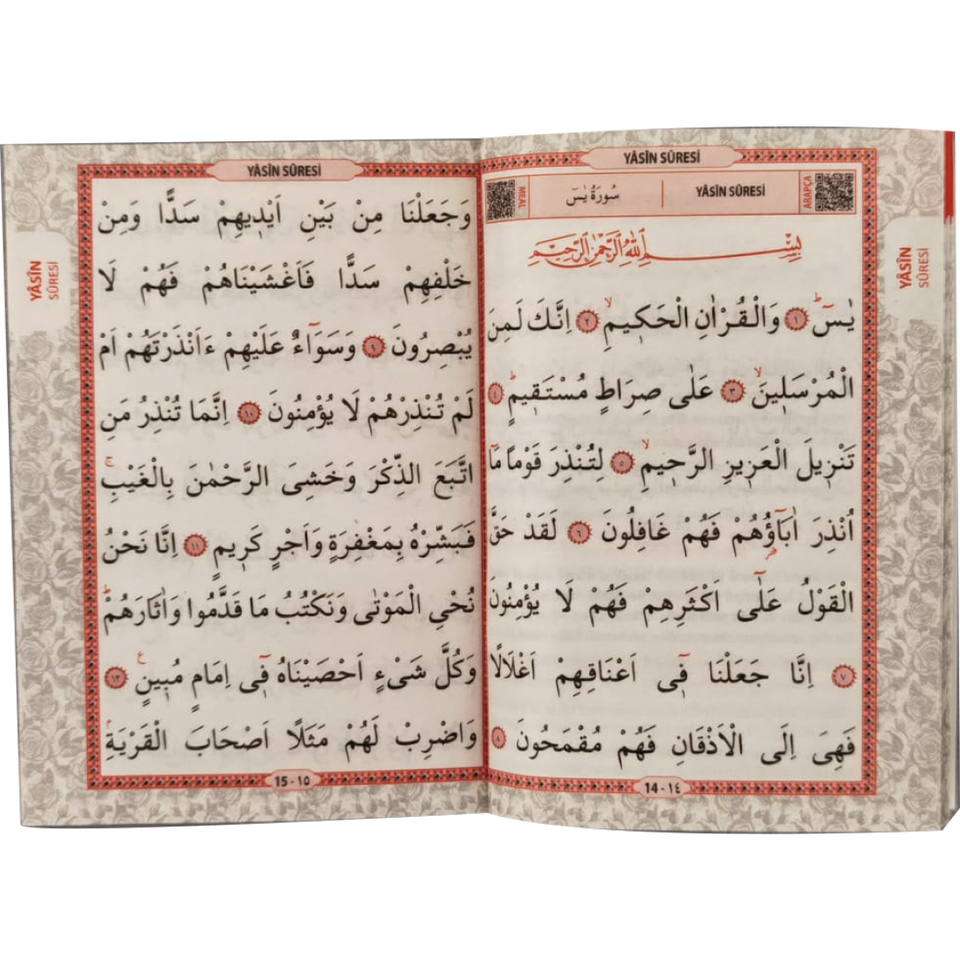 YÂSÎN SÛRESİ
ARAPÇA
YÂSÎN SÛRESİ
سُورَةُ يٰسٓ
MEAL
بِسْمِ اللّٰهِ الرَّحْمٰنِ الرَّحٖيمِ
يٰسٓۜ ﴿١﴾ وَالْقُرْاٰنِ الْحَكٖيمِۙ ﴿٢﴾ اِنَّكَ لَمِنَ
الْمُرْسَلٖينَۙ ﴿٣﴾ عَلٰى صِرَاطٍ مُسْتَقٖيمٍۜ ﴿٤﴾
تَنْزٖيلَ الْعَزٖيزِ الرَّحٖيمِۙ ﴿٥﴾ لِتُنْذِرَ قَوْماً مَٓا
اُنْذِرَ اٰبَٓاؤُ۬هُمْ فَهُمْ غَافِلُونَ ﴿٦﴾ لَقَدْ حَقَّ
الْقَوْلُ عَلٰٓى اَكْثَرِهِمْ فَهُمْ لَا يُؤْمِنُونَ
﴿٧﴾ اِنَّا جَعَلْنَا فٖٓى اَعْنَاقِهِمْ اَغْلَالًا
فَهِىَ اِلَى الْاَذْقَانِ فَهُمْ مُقْمَحُونَ ﴿٨﴾
14 - ١٤
YÂSÎN
SÛRESİ
YÂSÎN SÛRESİ
وَجَعَلْنَا مِنْ بَيْنِ اَيْدٖيهِمْ سَدًّا وَمِنْ
خَلْفِهِمْ سَدًّا فَاَغْشَيْنَاهُمْ فَهُمْ لَا
يُبْصِرُونَ ﴿٩﴾ وَسَوَٓاءٌ عَلَيْهِمْ ءَاَنْذَرْتَهُمْ اَمْ
لَمْ تُنْذِرْهُمْ لَا يُؤْمِنُونَ ﴿١٠﴾ اِنَّمَا تُنْذِرُ مَنِ
اتَّبَعَ الذِّكْرَ وَخَشِىَ الرَّحْمٰنَ بِالْغَيْبِۚ
فَبَشِّرْهُ بِمَغْفِرَةٍ وَاَجْرٍ كَرٖيمٍ ﴿١١﴾ اِنَّا نَحْنُ
نُحْيِ الْمَوْتٰى وَنَكْتُبُ مَا قَدَّمُوا وَاٰثَارَهُمْۜ
وَكُلَّ شَىْءٍ اَحْصَيْنَاهُ فٖٓى اِمَامٍ مُبٖينٍࣖ ﴿١٢﴾
وَاضْرِبْ لَهُمْ مَثَلًا اَصْحَابَ الْقَرْيَةِۚ
15 - ١٥
YÂSÎN
SÛRESİ